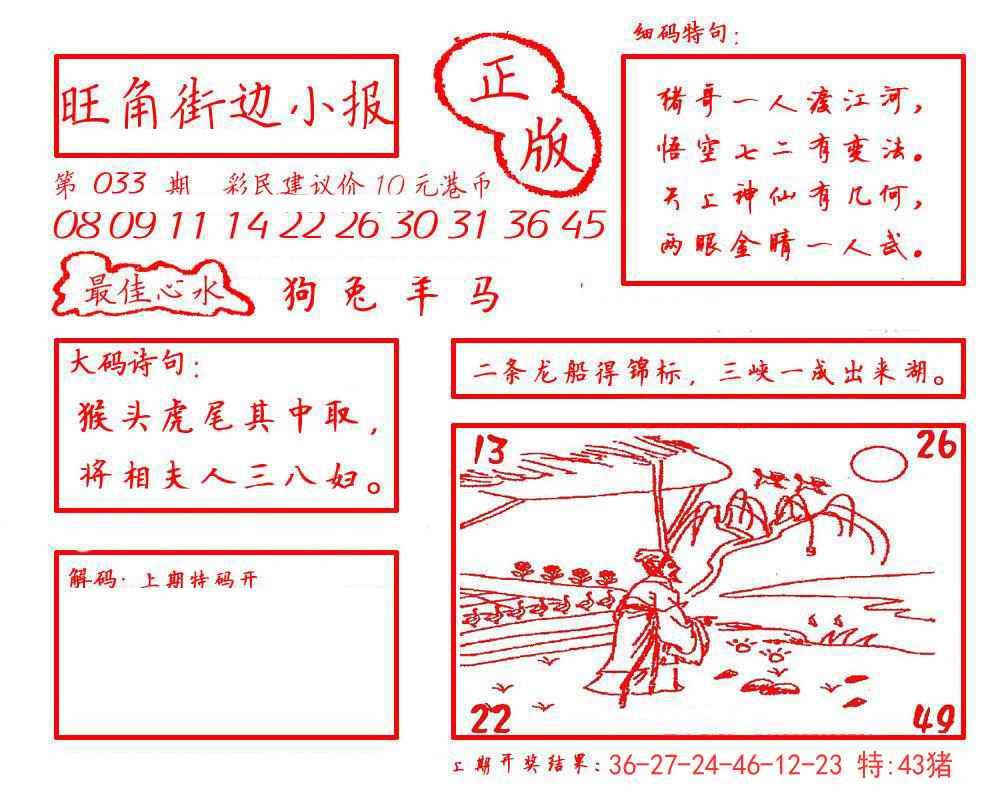 旺角街边小报
正版
第 033 期 彩民建议价10元港币
08 09 11 14 22 26 30 31 36 45
最佳心水 狗 兔 羊 马
细码特句：
猪哥一人渡江河，
悟空七二有变法。
天上神仙有几何，
两眼金睛一人武。
大码诗句：
猴头虎尾其中取，
将相夫人三八妇。
二条龙船得锦标，三峡一成出来湖。
解码·上期特码开
13
26
22
49
上期开奖结果：36-27-24-46-12-23 特:43猪